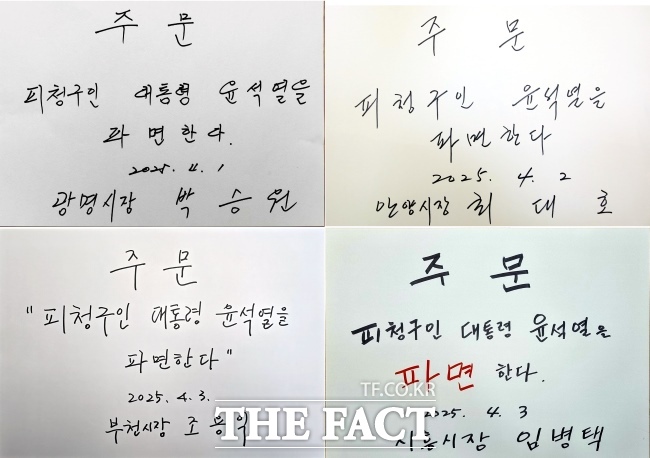 주 문
피청구인 대통령 윤석열을
파면한다.
2025. 4. 1
광명시장 박승원
주 문
피청구인 윤석열을
파면한다
2025. 4. 2
안양시장 최대호
주 문
"피청구인 대통령 윤석열을
파면한다"
2025. 4. 3.
부천시장 조용익
주 문
피청구인 대통령 윤석열을
파면 한다.
2025. 4. 3
시흥시장 임병택
TF.CO.KR
THE FACT